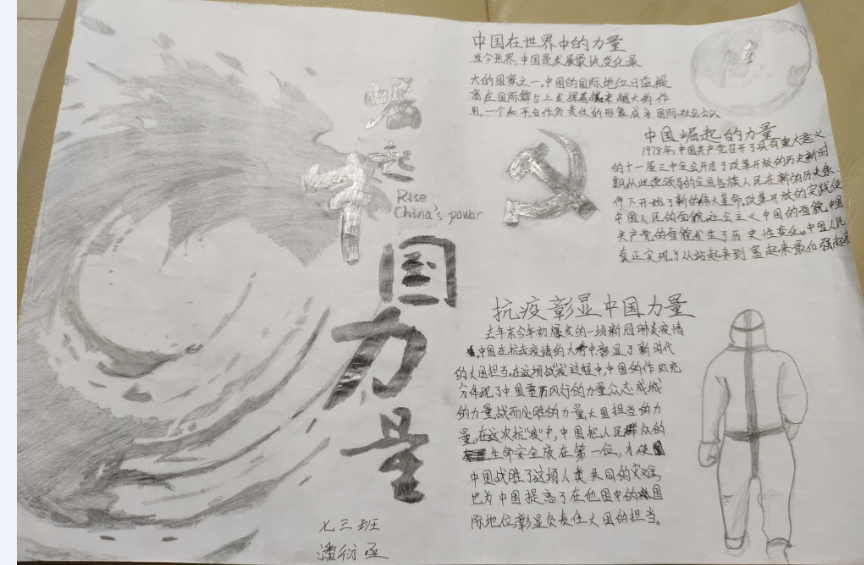 崛
起
Rise
China's power
中
国
力
量
七三班
潘衍丞
中国在世界中的力量
当今世界,中国是发展最快,变化最
大的国家之一。中国的国际地位日益提
高在国际舞台上发挥着越来越大的作
用,一个和平合作负责任的形象成为国际社会公认
中国崛起的力量
1978年,中国共产党召开了具有重大意义
的十一届三中全会开启了改革开放的历史新时
期从此党领导的全国各族人民在新的历史条
件下开始了新的伟大革命,改革开放的实践使
中国人民的面貌社会主义中国的面貌中国
共产党的面貌发生了历史性变化。中国人民
真正实现了从站起来到富起来最后强起来
抗疫彰显中国力量
去年末今年初爆发的一场新冠肺炎疫情
中国在抗击疫情的大考中彰显了新时代
的大国担当。在这场战疫过程中,中国的作风充
分体现了中国雷厉风行的力量众志成城
的力量,战而必胜的力量,大国担当的力
量。在这次抗"疫"中,中国把人民群众的
生命安全放在第一位,才使
中国战胜了这场人类共同的灾难,
也为中国提高了在他国中的国
际地位,彰显负责任大国的担当。